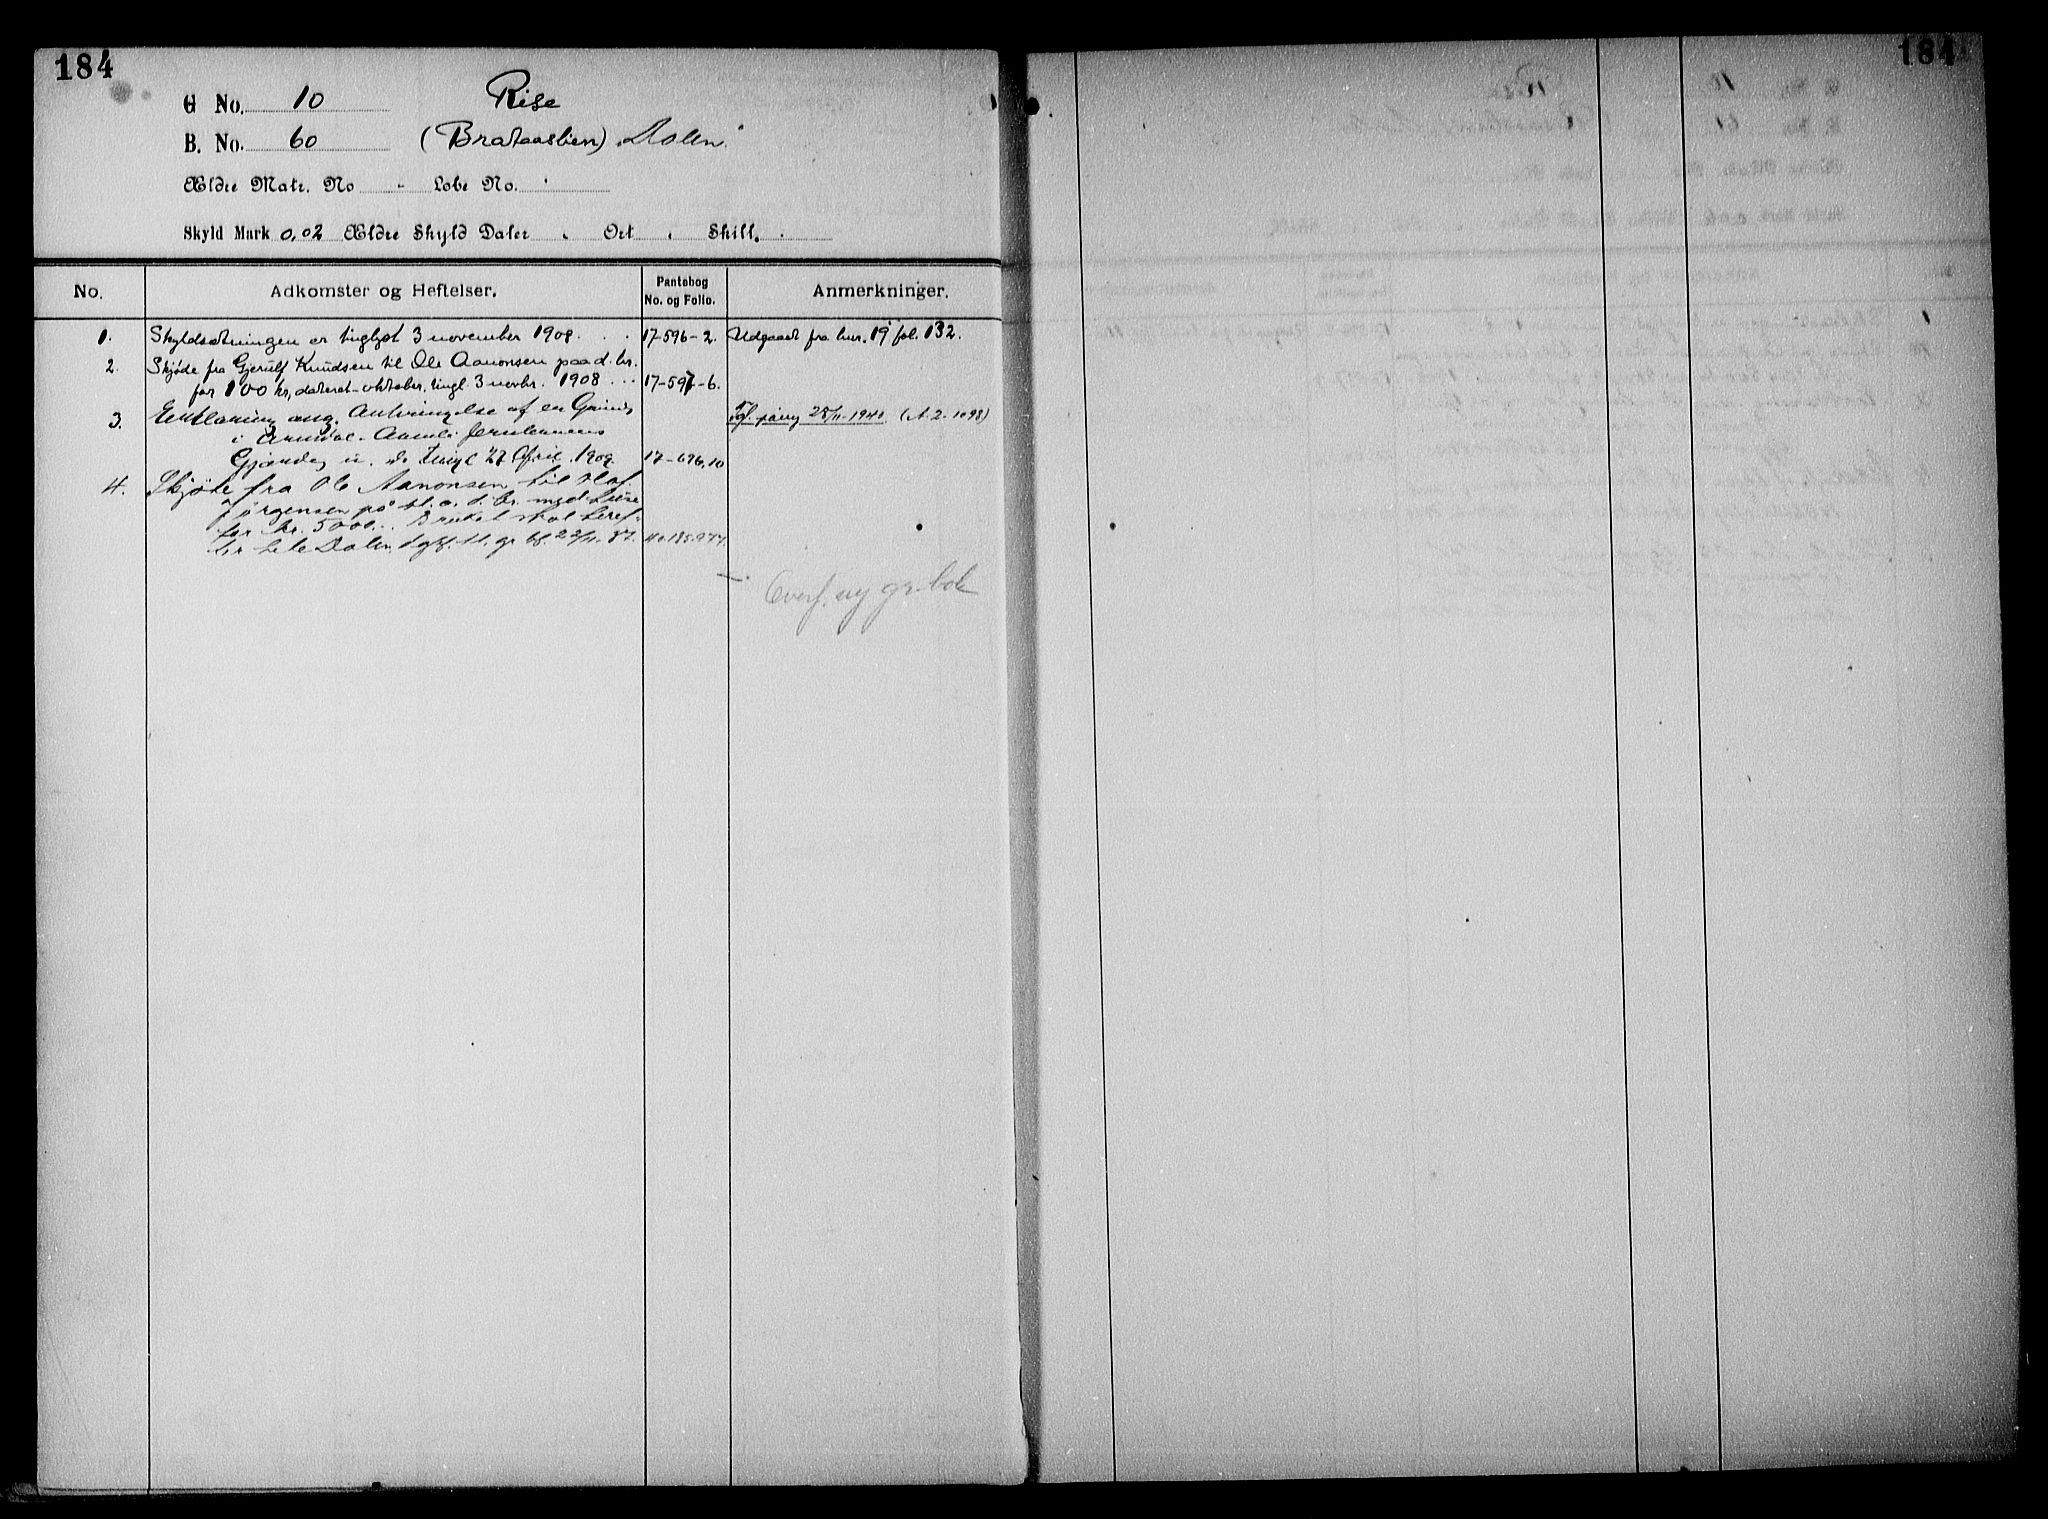 184
184
G No. 10 Rise
B. No. 60 (Brataaslien) Dalen
Ældre Matr. No - Løbe No.
Skyld Mark 0,02 Ældre Skyld Daler Ort Skill.
No. Adkomster og Heftelser. Pantebog No. og Folio. Anmerkninger.
1. Skyldsætningen er tinglyst 3 november 1908. 17-596-2. Udgaaet fra bnr. 19 fol. 132.
2. Skjøde fra Gjerulf Knudsen til Ole Aanonsen paa d. br.
for 100 kr, dateret - oktober, tingl. 3 novbr. 1908 17-597-6.
3. Erklæring ang. Anbringelse af en Grind
i Arendal-Aamli Jernbanens
Gjærde, tingl 27 April 1909 17-696,10
Tgl. påny 28/11-1940 (A. 2-1098)
4. Skjøte fra Ole Aanonsen til Olaf
Jørgensen på bl. a. d. br. med
for kr. 5000. Bruket skal heref-
ter hete Dalen. dgl.
Overf. ny gr.bok